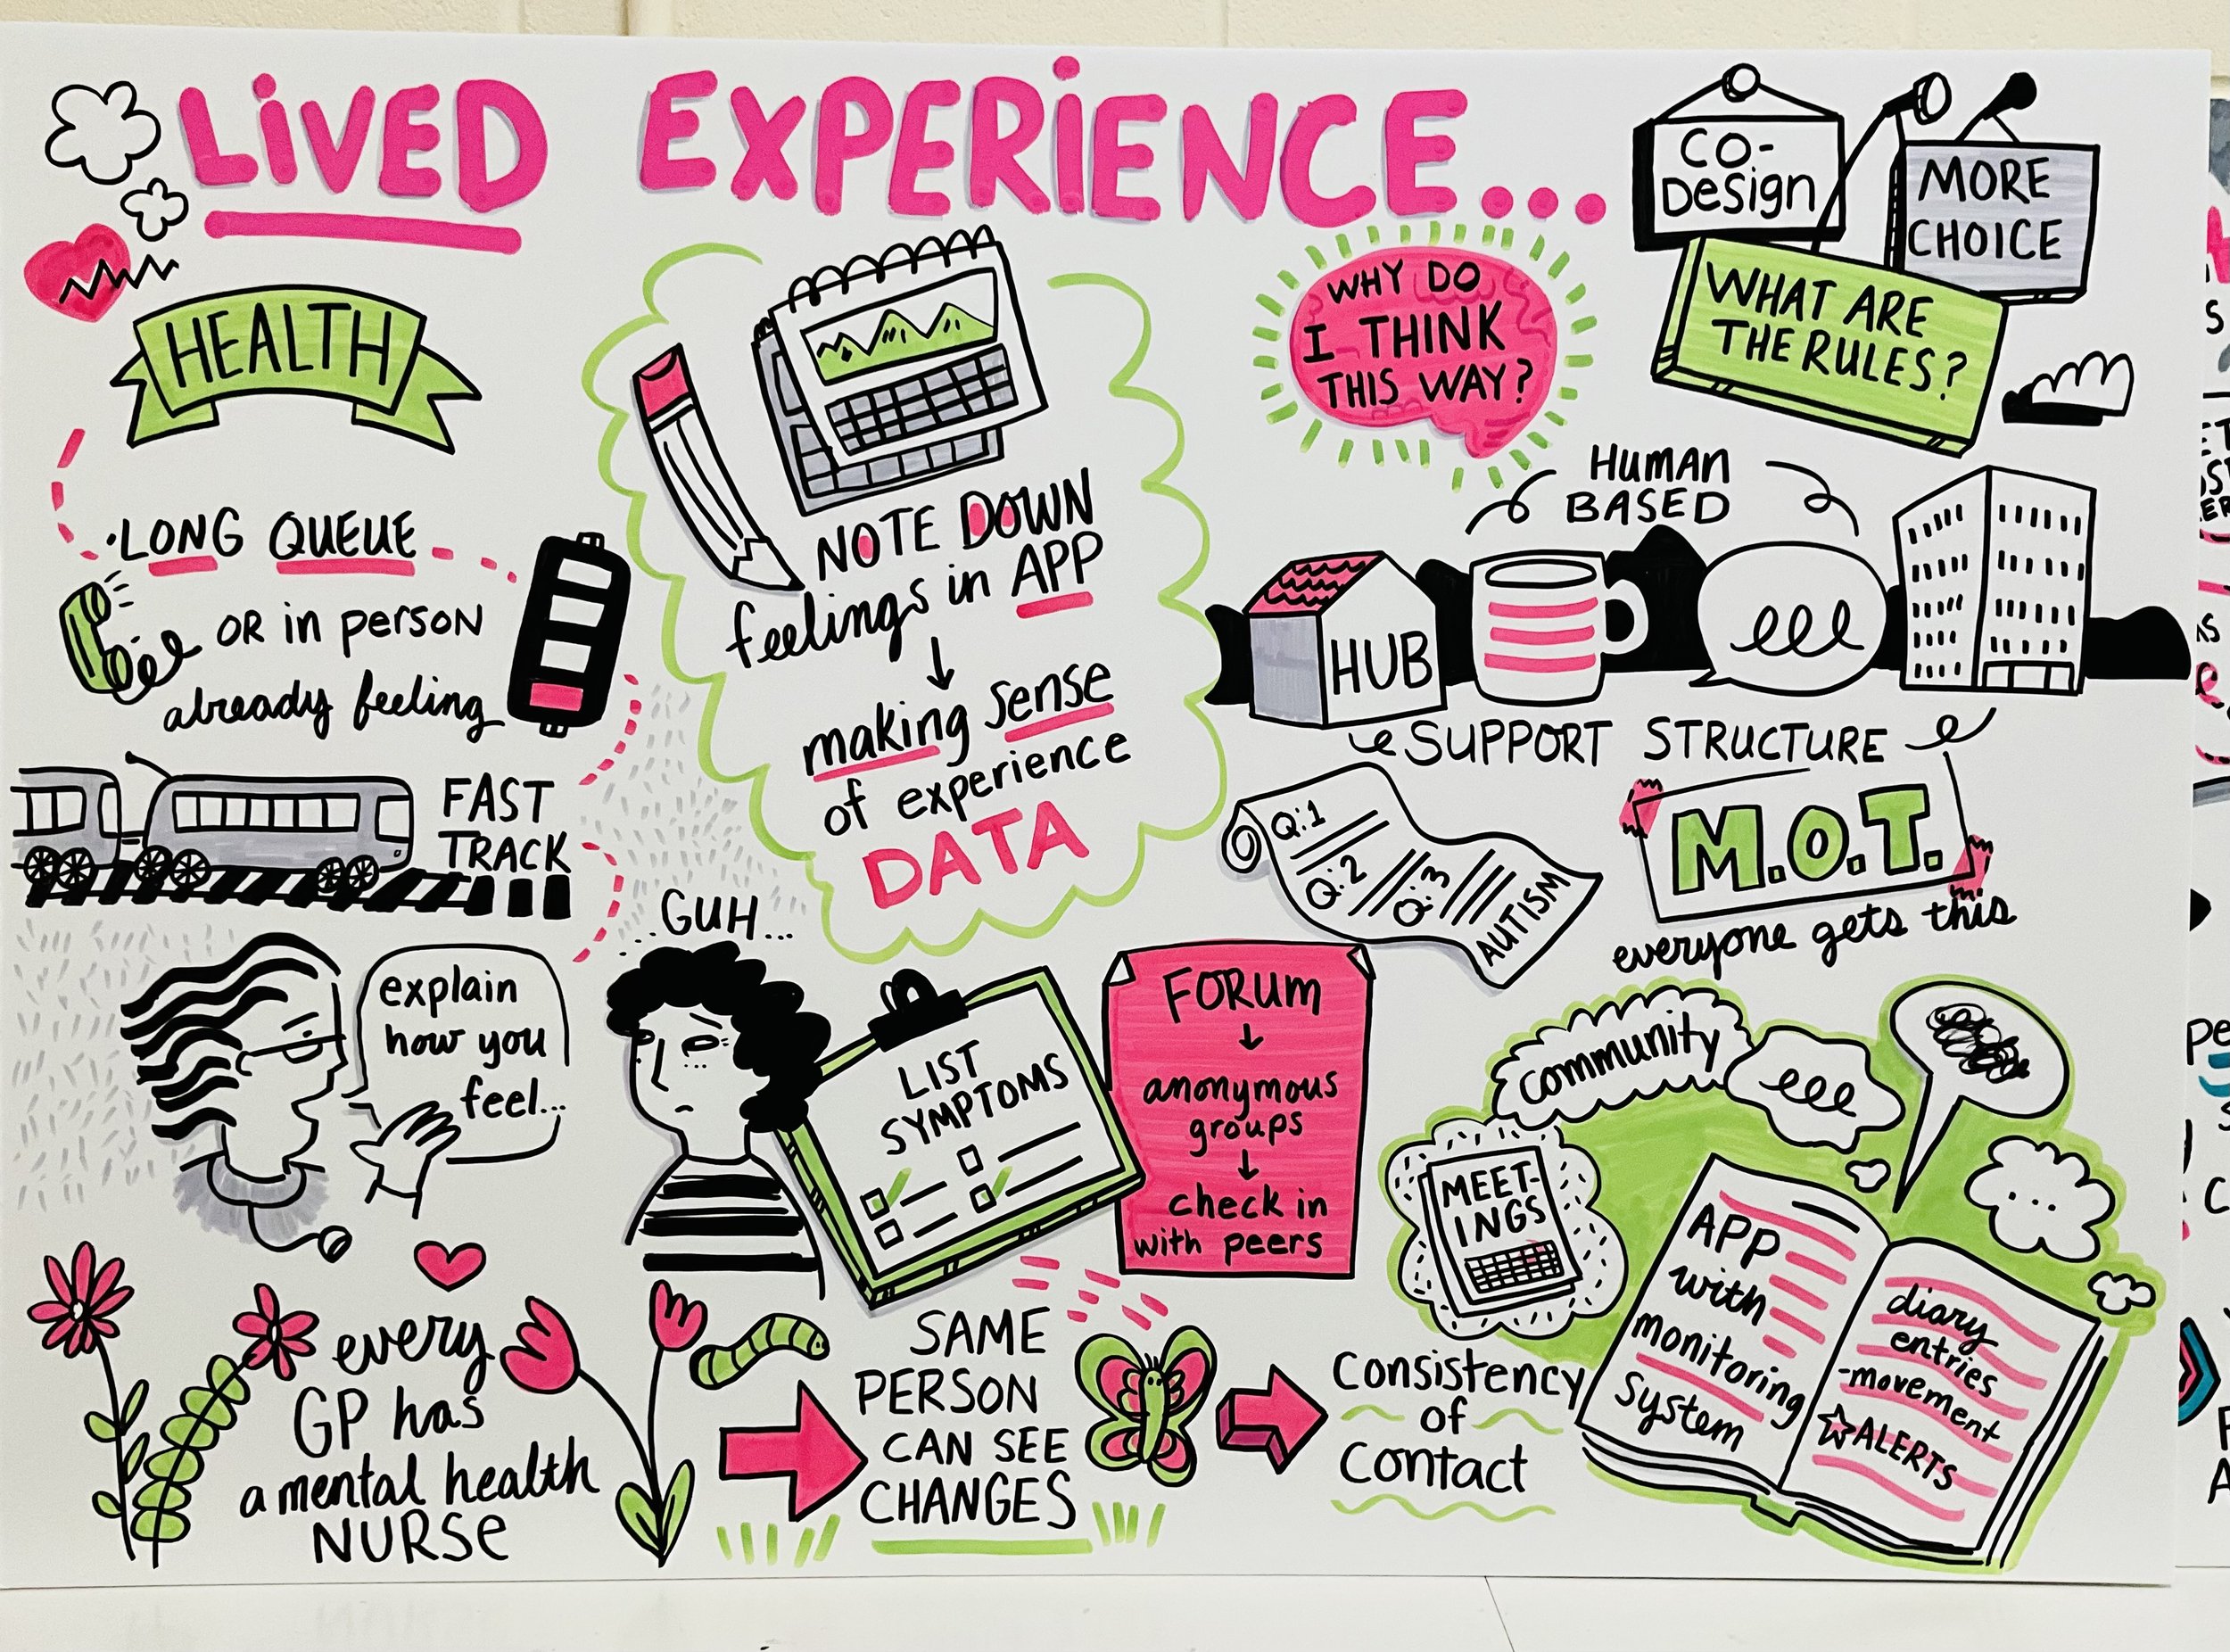 LiVED EXPERiENCE...
HEALTH
LONG QUEUE
OR in person
already feeling
FAST
TRACK
explain
how you
feel...
every
GP has
a mental health
NURSE
NOTE DOWN
feelings in APP
making sense
of experience
DATA
..GUH...
LIST
SYMPTOMS
FORUM
anonymous
groups
check in
with peers
SAME
PERSON
CAN SEE
CHANGES
Consistency
of
Contact
WHY DO
I THINK
THIS WAY?
CO-
Design
MORE
CHOICE
WHAT ARE
THE RULES?
HUMAN
BASED
HUB
SUPPORT STRUCTURE
Q:1
Q:2
Q:3
AUTISM
M.O.T.
everyone gets this
community
MEET-
INGS
APP
with
monitoring
system
diary
entries
-movement
ALERTS